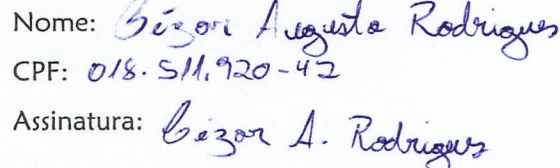 Nome: Cézar Augusto Rodrigues
CPF: 018.511.920-42
Assinatura: Cézar A. Rodrigues